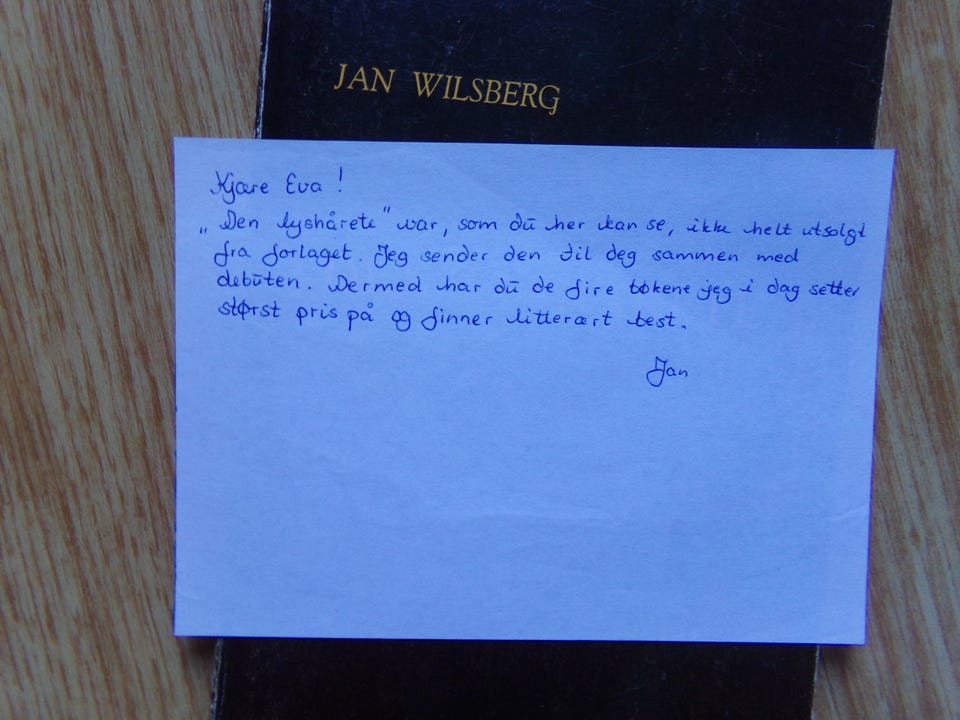 JAN WILSBERG
Kjære Eva !
„Den lyshårete" var, som du her kan se, ikke helt utsolgt
fra forlaget. Jeg sender den til deg sammen med
debuten. Dermed har du de fire bøkene jeg i dag setter
størst pris på og finner litterært best.
Jan